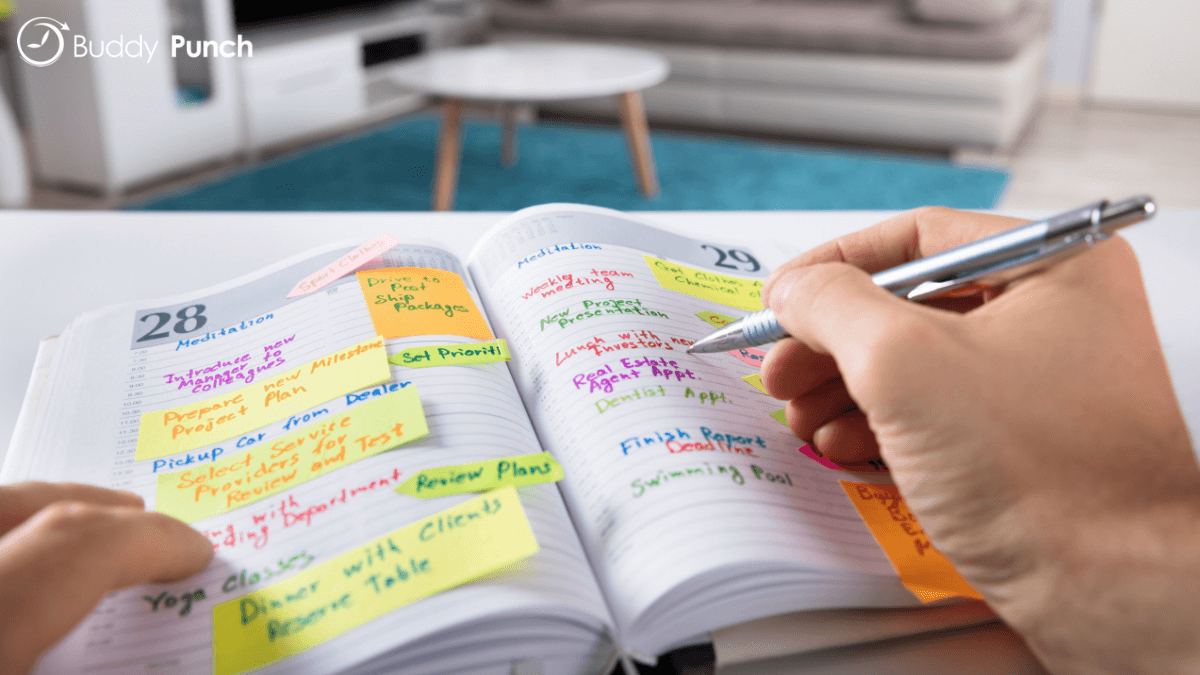 Buddy Punch
Sport Clothes
28
Meditation
Introduce new
Manager to
colleagues
Drive to
Post
Ship
Packages
Set Prioriti
Prepare new Milestone
Project Plan
Pickup Car from Dealer
Select Service
Providers for
Review and Test
Review Plans
with
Department
Yoga Classes
Dinner with Clients
Reserve Table
29
Meditation
Weekly team
meeting
Get Clothes
New Project
Presentation
Lunch with new
Investors
Real Estate
Agent Appt.
Dentist Appt.
Finish Report
Deadline
Swimming Pool